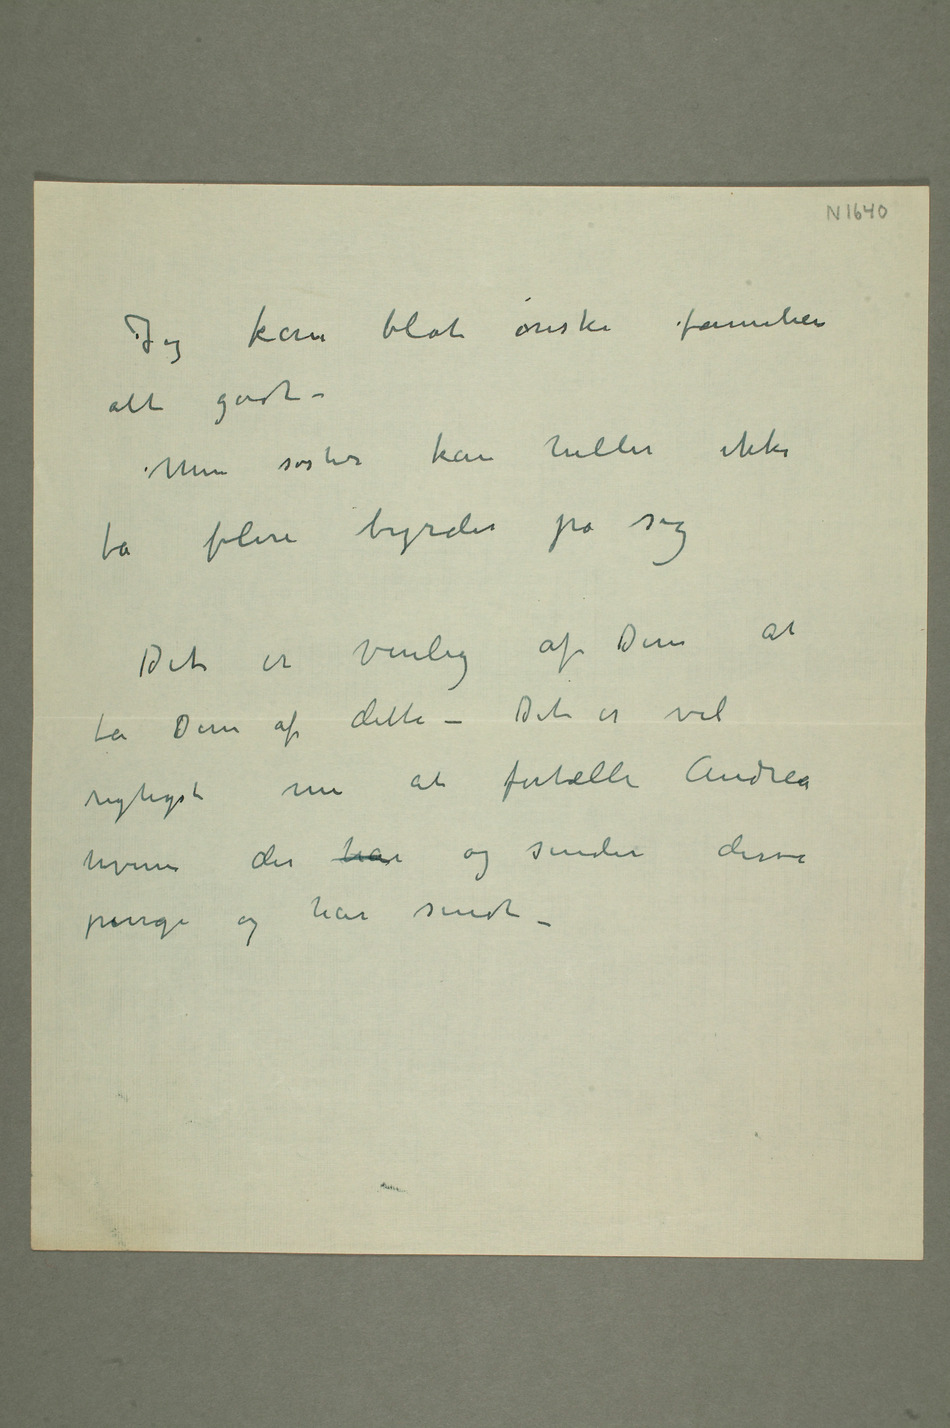 N 1640
Jeg kan blot ønske familien
alt godt –
Min søster kan heller ikke
ta flere byrder på sig
Det er venlig af Dem at
ta Dem af dette – Det er vel
rigtigst nu at fortælle Andrea
hvem der har og sender disse
penge og har sendt –